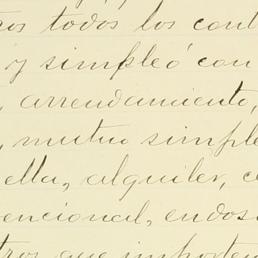 cos todos los cont
y simpleó con
, arrendamiento,
, mutuo simple
ella, alquiler, c
encional, endos
tros que importen